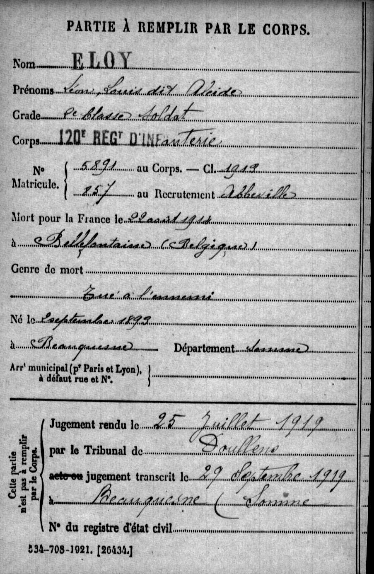 PARTIE À REMPLIR PAR LE CORPS.
Nom ELOY
Prénoms Léon, Louis dit Alcide
Grade 2e classe Soldat
Corps 120e REGt D'INFanterie
N° Matricule. { 5891 au Corps. — Cl. 1913
257 au Recrutement Abbeville
Mort pour la France le 22 août 1914
à Bellefontaine (Belgique)
Genre de mort
Tué à l'ennemi
Né le 2 septembre 1893
à Beauquesne Département Somme
Arrt municipal (pr Paris et Lyon), à défaut rue et N°.
Cette partie n'est pas à remplir par le Corps.
Jugement rendu le 25 Juillet 1919
par le Tribunal de Doullens
acte ou jugement transcrit le 29 Septembre 1919
à Beauquesne (Somme
N° du registre d'état civil
534-708-1921. [26434.]